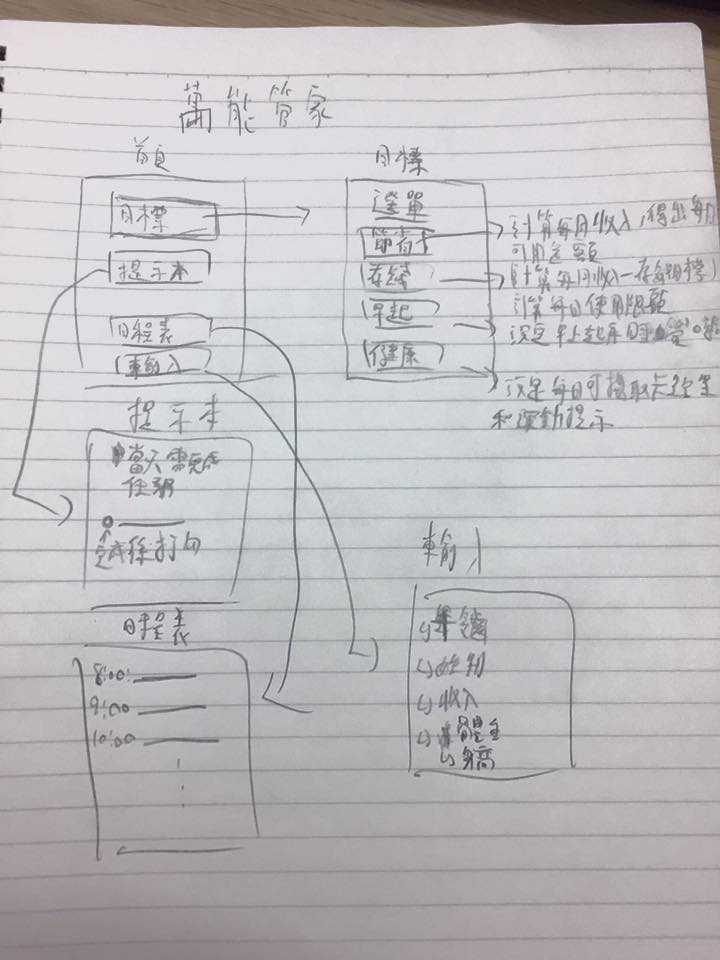 萬能管家
首頁
目標
提示本
日程表
輸入
目標
選單
節省
存錢
早起
健康
計算每月收入，得出每月
可用金額
(計算每月收入－存錢目標)
計算每日使用限額
設定早上起床時
每日可攝取卡路里
和運動提示
提示本
當天需完成
任務
完成後打勾
日程表
8:00
9:00
10:00
輸入
年齡
性別
收入
體重
身高